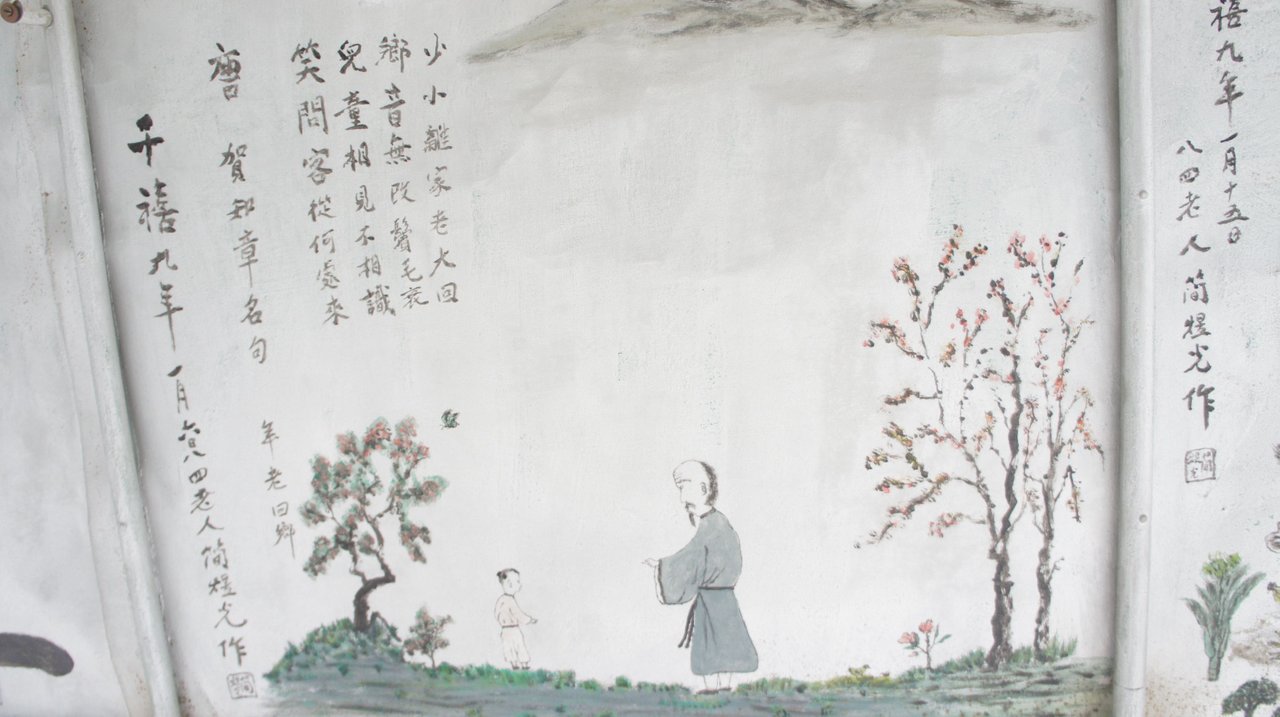 禧九年一月十五日
八四老人简煜光作
少小離家老大回
鄉音無改鬢毛衰
兒童相見不相識
笑問客從何處來
唐 賀知章名句
年老回鄉
千禧九年一月六日八四老人简煜光作